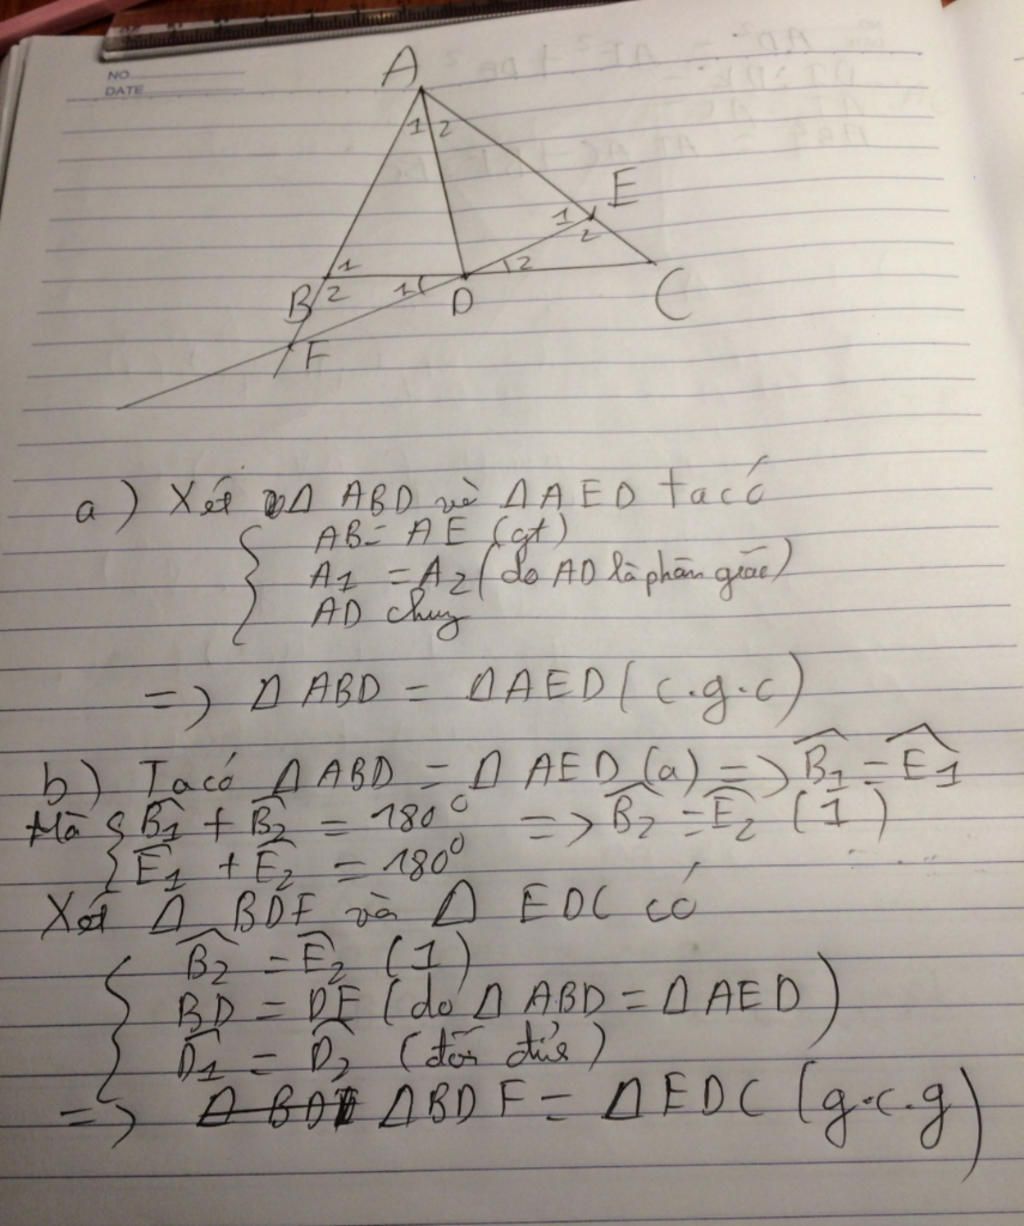 NO
DATE
A
1 2
E
1
2
1
B 2
1
D
2
C
F
a) Xét Δ ABD và Δ AED ta có
{ AB = AE (gt)
A1 = A2 (do AD là phân giác)
AD chung
=> Δ ABD = Δ AED (c.g.c)
b) Ta có Δ ABD = Δ AED (a) => B̂1 = Ê1
Mà { B̂1 + B̂2 = 180° => B̂2 = Ê2 (1)
Ê1 + Ê2 = 180°
Xét Δ BDF và Δ EDC có
{ B̂2 = Ê2 (1)
BD = DE (do Δ ABD = Δ AED)
D̂1 = D̂2 (đối đỉnh)
=> Δ BDF = Δ EDC (g.c.g)